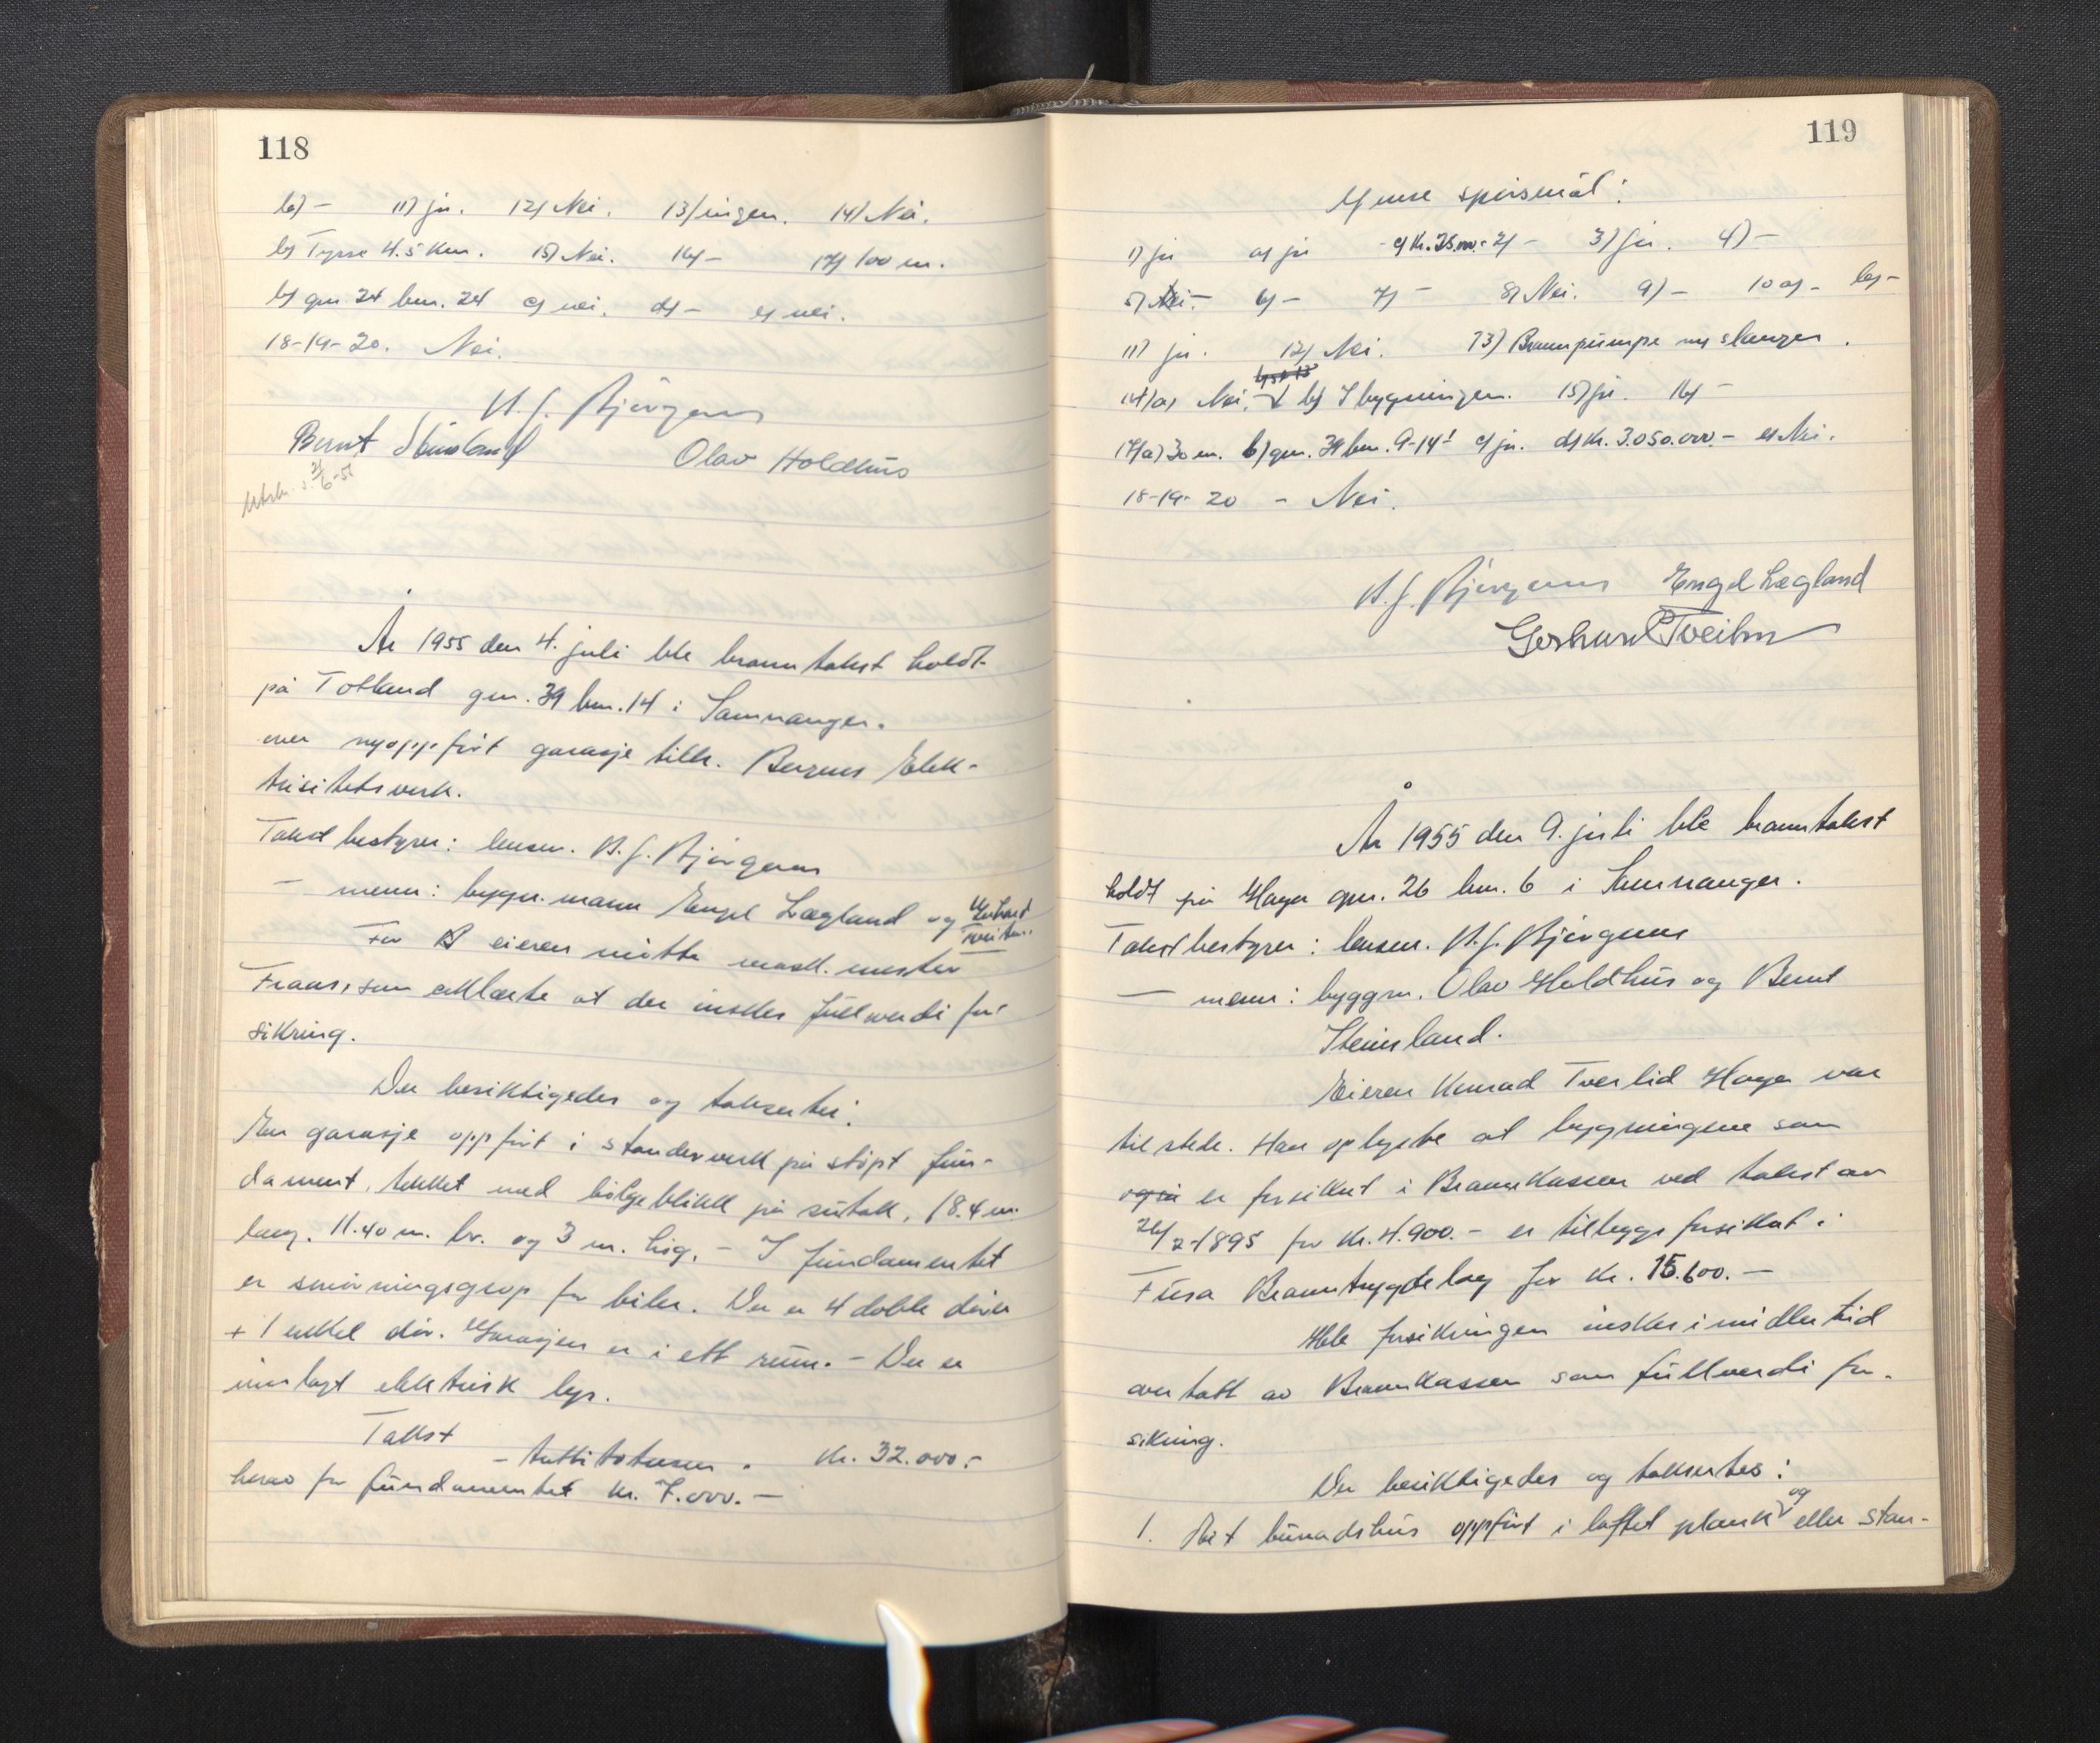 118
b) - 11) ja. 12) Nei. 13) ingen. 14) Nei.
b) Tysse 4.5 km. 15) Nei. 16) - 17) 100 m.
b) gnr. 24 bnr. 24 c) nei. d) - e) nei.
18-19-20. Nei.
N. J. Bjørgum
Bernt Steinsland Olav Holdhus
Utskr. 2/6-55
År 1955 den 4. juli ble branntakst holdt
på Totland gnr. 39 bnr. 14 i Samnanger.
over nyoppført garasje tilh. Bergens Elek-
trisitetsverk.
Takstbestyrer: lensm. N. J. Bjørgum
- menn: byggn. mann Engel Lægland og Gerhard
Tveiten.
For eieren møtte mask. mester
Fraas, som erklærte at der ønskes fullverdi for-
sikring.
Der besiktigedes og taksertes:
En garasje oppført i standerverk på støpt fun-
dament, tekket med bølgeblikk på sutak, 18.4 m.
lang. 11.40 m. br. og 3 m. høg. - I fundamentet
er smørningsgrop for biler. Der er 4 doble dører
+ 1 enkel dør. Garasjen er i ett rum. - Der er
innlagt elektrisk lys.
Takst
- trettitotusen. Kr. 32.000.-
herav for fundamentet kr. 7.000.-
119
Ymse spørsmål:
1) ja a) ja - c) Kr. 25.000.- 2) - 3) ja. 4) -
5) Nei - 6) - 7) - 8) Nei. 9) - 10 a) - b) -
11) ja. 12) Nei. 13) Brannpumpe m/ slanger.
14) a) Nei. b) I bygningen. 15) ja. 16) -
17) a) 30 m. b) gnr. 39 bnr. 9-14! c) ja. d) Kr. 3.050.000.- e) Nei.
18-19-20 - Nei.
N. J. Bjørgum Engel Lægland
Gerhard Tveiten
År 1955 den 9. juli ble branntakst
holdt på Haga gnr. 26 bnr. 6 i Samnanger.
Takstbestyrer: lensm. N. J. Bjørgum
- menn: byggm. Olav Holdhus og Bernt
Steinsland.
Eieren Konrad Tverlid Haga var
tilstede. Han oplyste at bygningene som
også er forsikret i Brannkassen ved takst av
26/2-1895 for kr. 4.900.- er tilleggsforsikret i
Fusa Branntrygdelag for kr. 15.600.-
Hele forsikringen ønskes imidlertid
overtatt av Brannkassen som fullverdi for-
sikring.
Der besiktigedes og taksertes:
1. Et bunadshus oppført i laftet plank og eller stan-